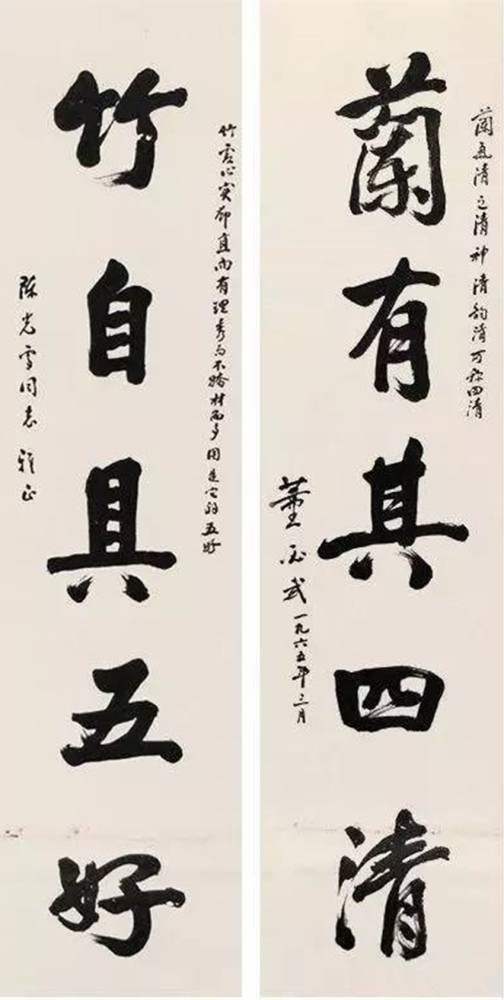 蘭氣清色清神清韵清可称四清
蘭有其四清
董必武 一九六五年三月
竹虚心实節直而有理秀而不材而多用是它的五好
竹自具五好
陈光雪同志 雅正